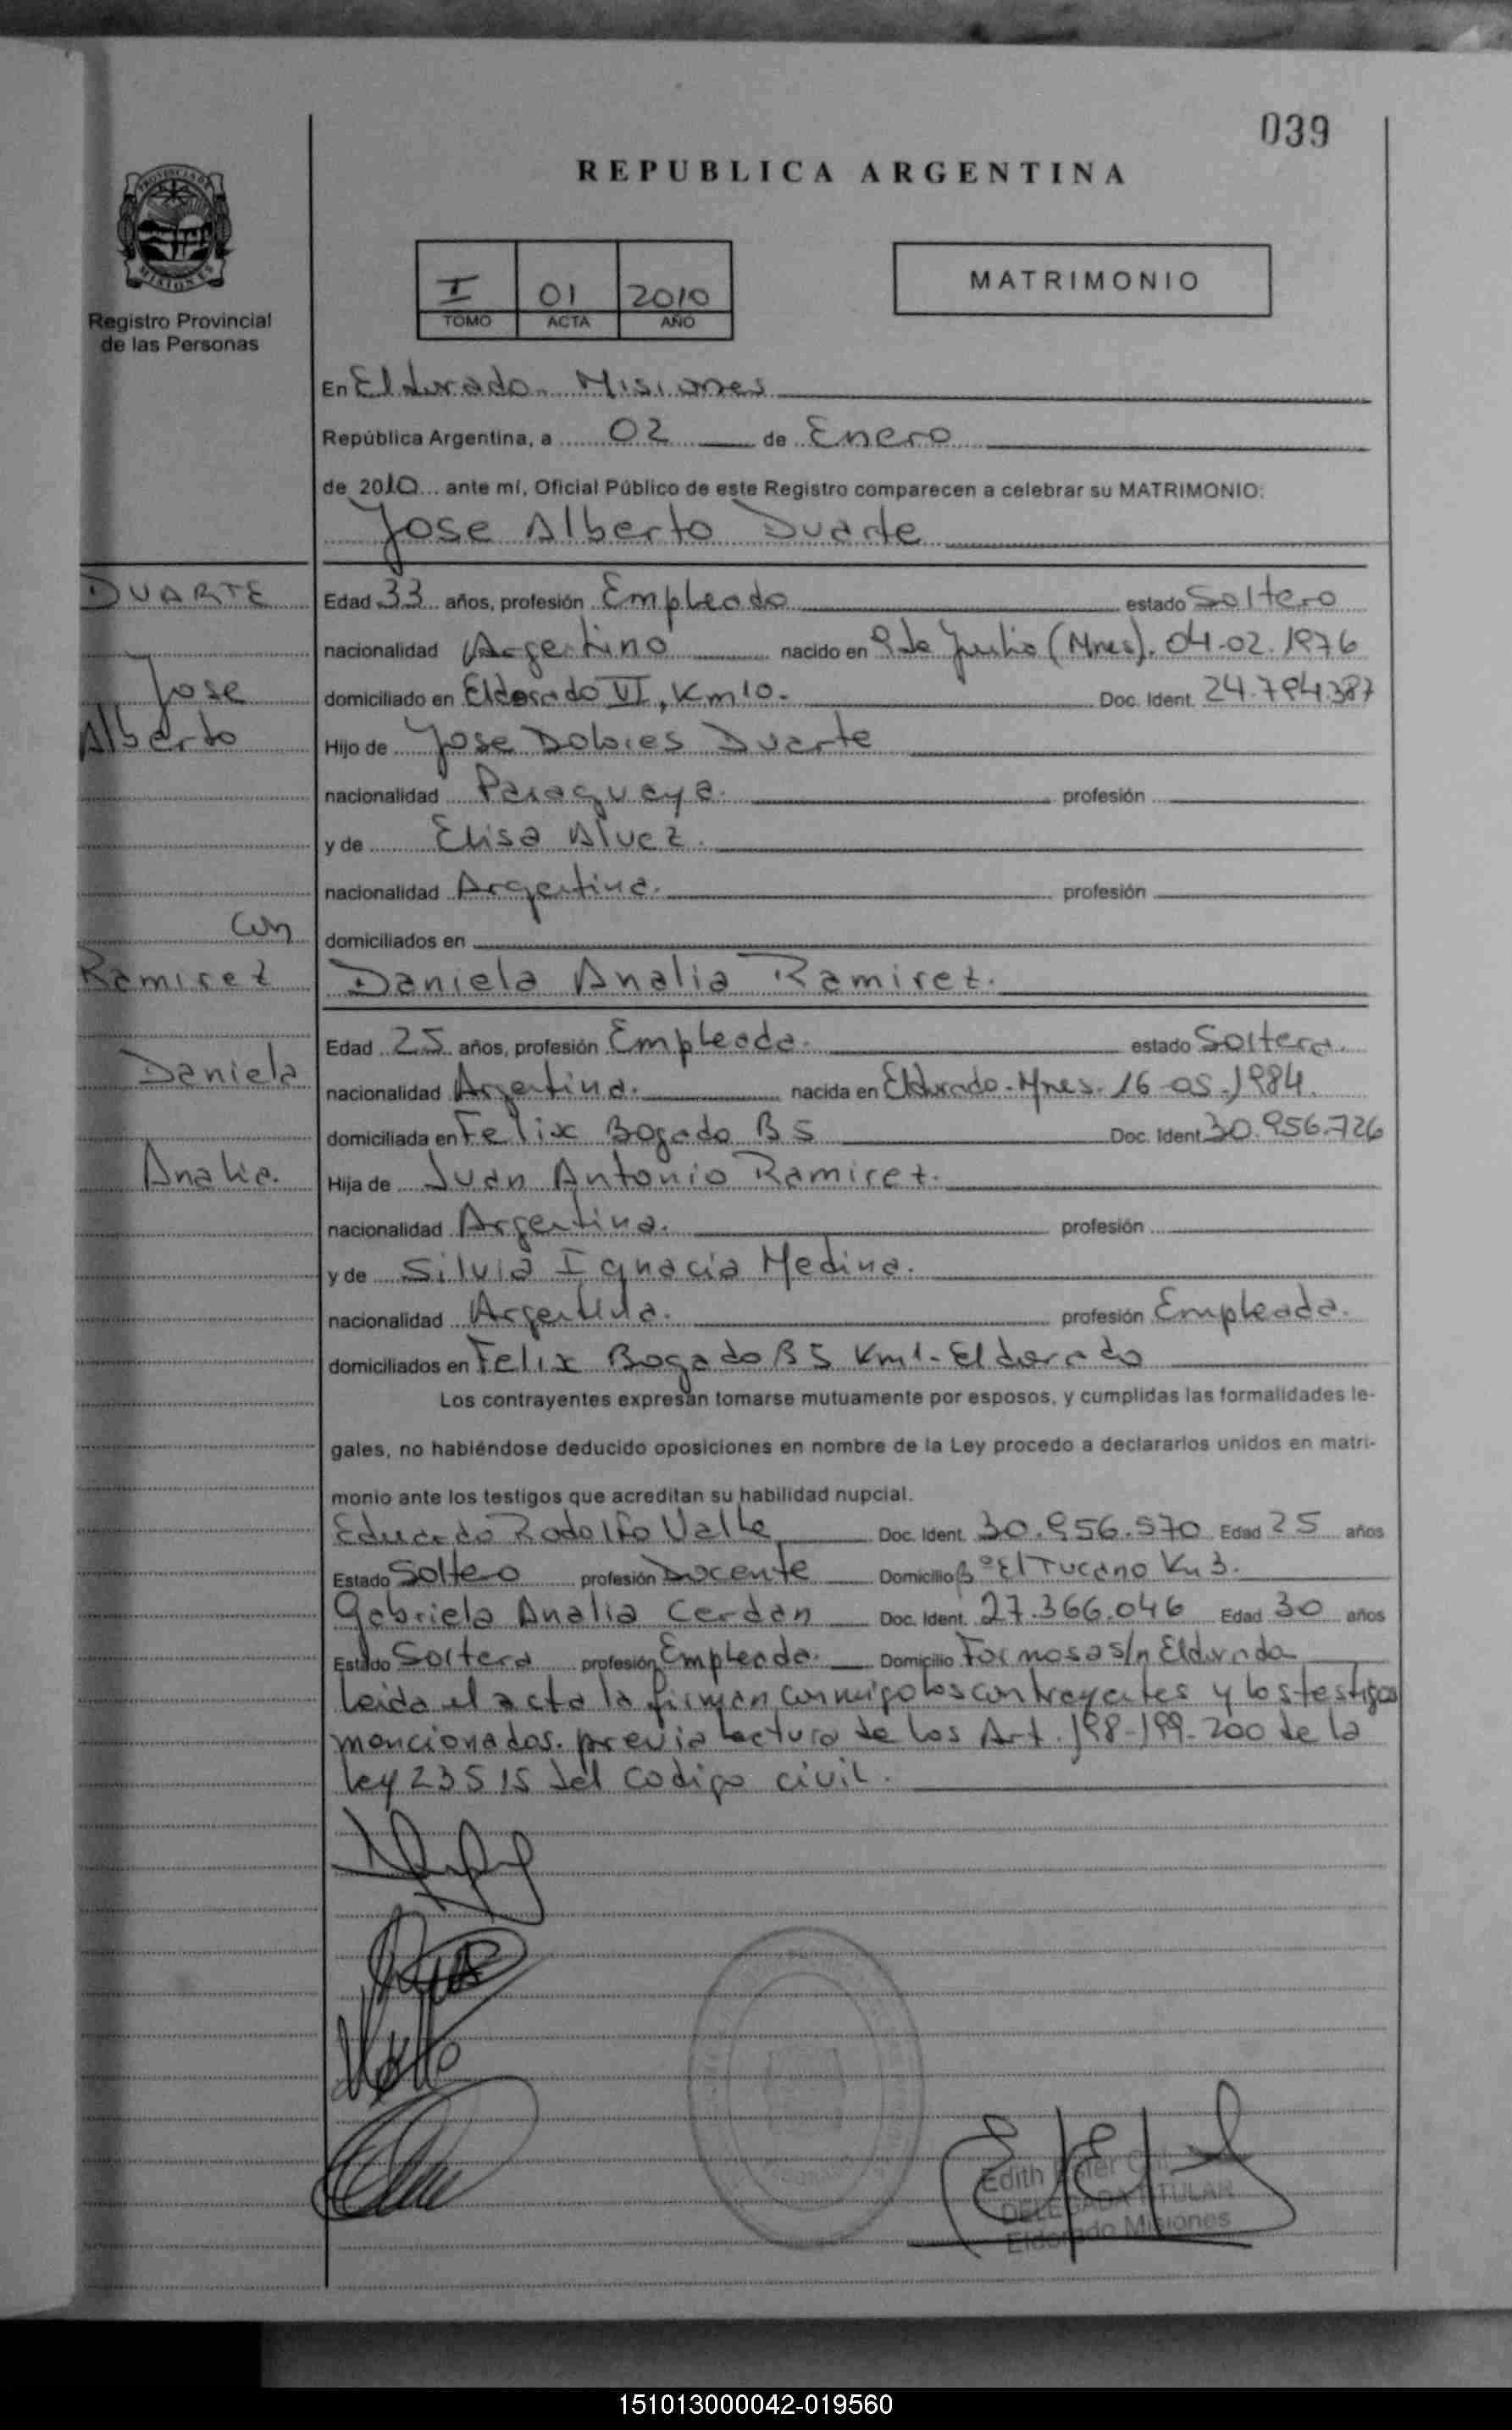 039
REPUBLICA ARGENTINA
PROVINCIA DE
MISIONES
Registro Provincial
de las Personas
I 01 2010
TOMO ACTA AÑO
MATRIMONIO
En Eldorado. Misiones
República Argentina, a 02 de Enero
de 2010 ante mí, Oficial Público de este Registro comparecen a celebrar su MATRIMONIO:
Jose Alberto Duarte
DUARTE
Jose
Alberto
con
Ramirez
Daniela
Analia.
Edad 33 años, profesión Empleado estado Soltero
nacionalidad Argentino nacido en 9 de Julio (Mnes). 04-02.1976
domiciliado en Eldorado VI, Km 10. Doc. Ident. 24.794.387
Hijo de Jose Dolores Duarte
nacionalidad Paraguaya. profesión
y de Elisa Alvez.
nacionalidad Argentina. profesión
domiciliados en
Daniela Analia Ramirez.
Edad 25 años, profesión Empleada. estado Soltera.
nacionalidad Argentina. nacida en Eldorado-Mnes. 16-05-1984.
domiciliada en Felix Bogado B 5 Doc. Ident 30.956.726
Hija de Juan Antonio Ramirez.
nacionalidad Argentina. profesión
y de Silvia Ignacia Medina.
nacionalidad Argentina. profesión Empleada.
domiciliados en Felix Bogado B 5 Km 1-Eldorado
Los contrayentes expresan tomarse mutuamente por esposos, y cumplidas las formalidades le-
gales, no habiéndose deducido oposiciones en nombre de la Ley procedo a declararlos unidos en matri-
monio ante los testigos que acreditan su habilidad nupcial.
Eduardo Rodolfo Valle Doc. Ident. 30.956.570 Edad 25 años
Estado Soltero profesión Docente Domicilio Bº El Tucano Km 3.
Gabriela Analia Cerdan Doc. Ident. 27.366.046 Edad 30 años
Estado Soltera profesión Empleada. Domicilio Formosa s/n Eldorado
Leida el acta la firman conmigo los contrayentes y los testigos
mencionados. previa lectura de los Art. 198-199-200 de la
Ley 23515 del codigo civil.
Edith
DELEGADA TITULAR
Eldorado Misiones
151013000042-019560